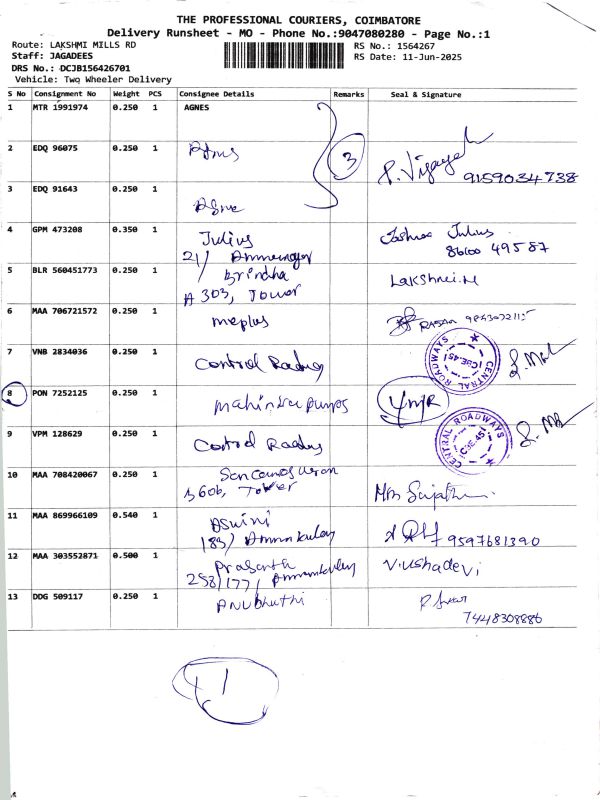 THE PROFESSIONAL COURIERS, COIMBATORE
Delivery Runsheet - MO - Phone No.:9047080280 - Page No.:1
Route: LAKSHMI MILLS RD
RS No.: 1564267
Staff: JAGADEES
RS Date: 11-Jun-2025
DRS No.: DCJB156426701
Vehicle: Two Wheeler Delivery
S No Consignment No Weight PCS Consignee Details Remarks Seal & Signature
1 MTR 1991974 0.250 1 AGNES
2 EDQ 96075 0.250 1
3
P. Vijaya
9159034738
3 EDQ 91643 0.250 1
4 GPM 473208 0.350 1 Julius
21/
Julius
86100 49587
5 BLR 560451773 0.250 1 Brindha
A 303, Tower
Lakshmi.M
6 MAA 706721572 0.250 1 meplus
7 VNB 2834036 0.250 1 Control
CENTRAL ROADWAYS
CBE-45
8 PON 7252125 0.250 1 mahindra pumps
9 VPM 128629 0.250 1 Control
CENTRAL ROADWAYS
CBE-45
10 MAA 708420067 0.250 1
B606, Tower
11 MAA 869966109 0.540 1 Aswini
183/
9597681390
12 MAA 303552871 0.500 1 Prasanth
258/177/
V.Ushadevi
13 DDG 509117 0.250 1 Anubhuthi
7448308886
1